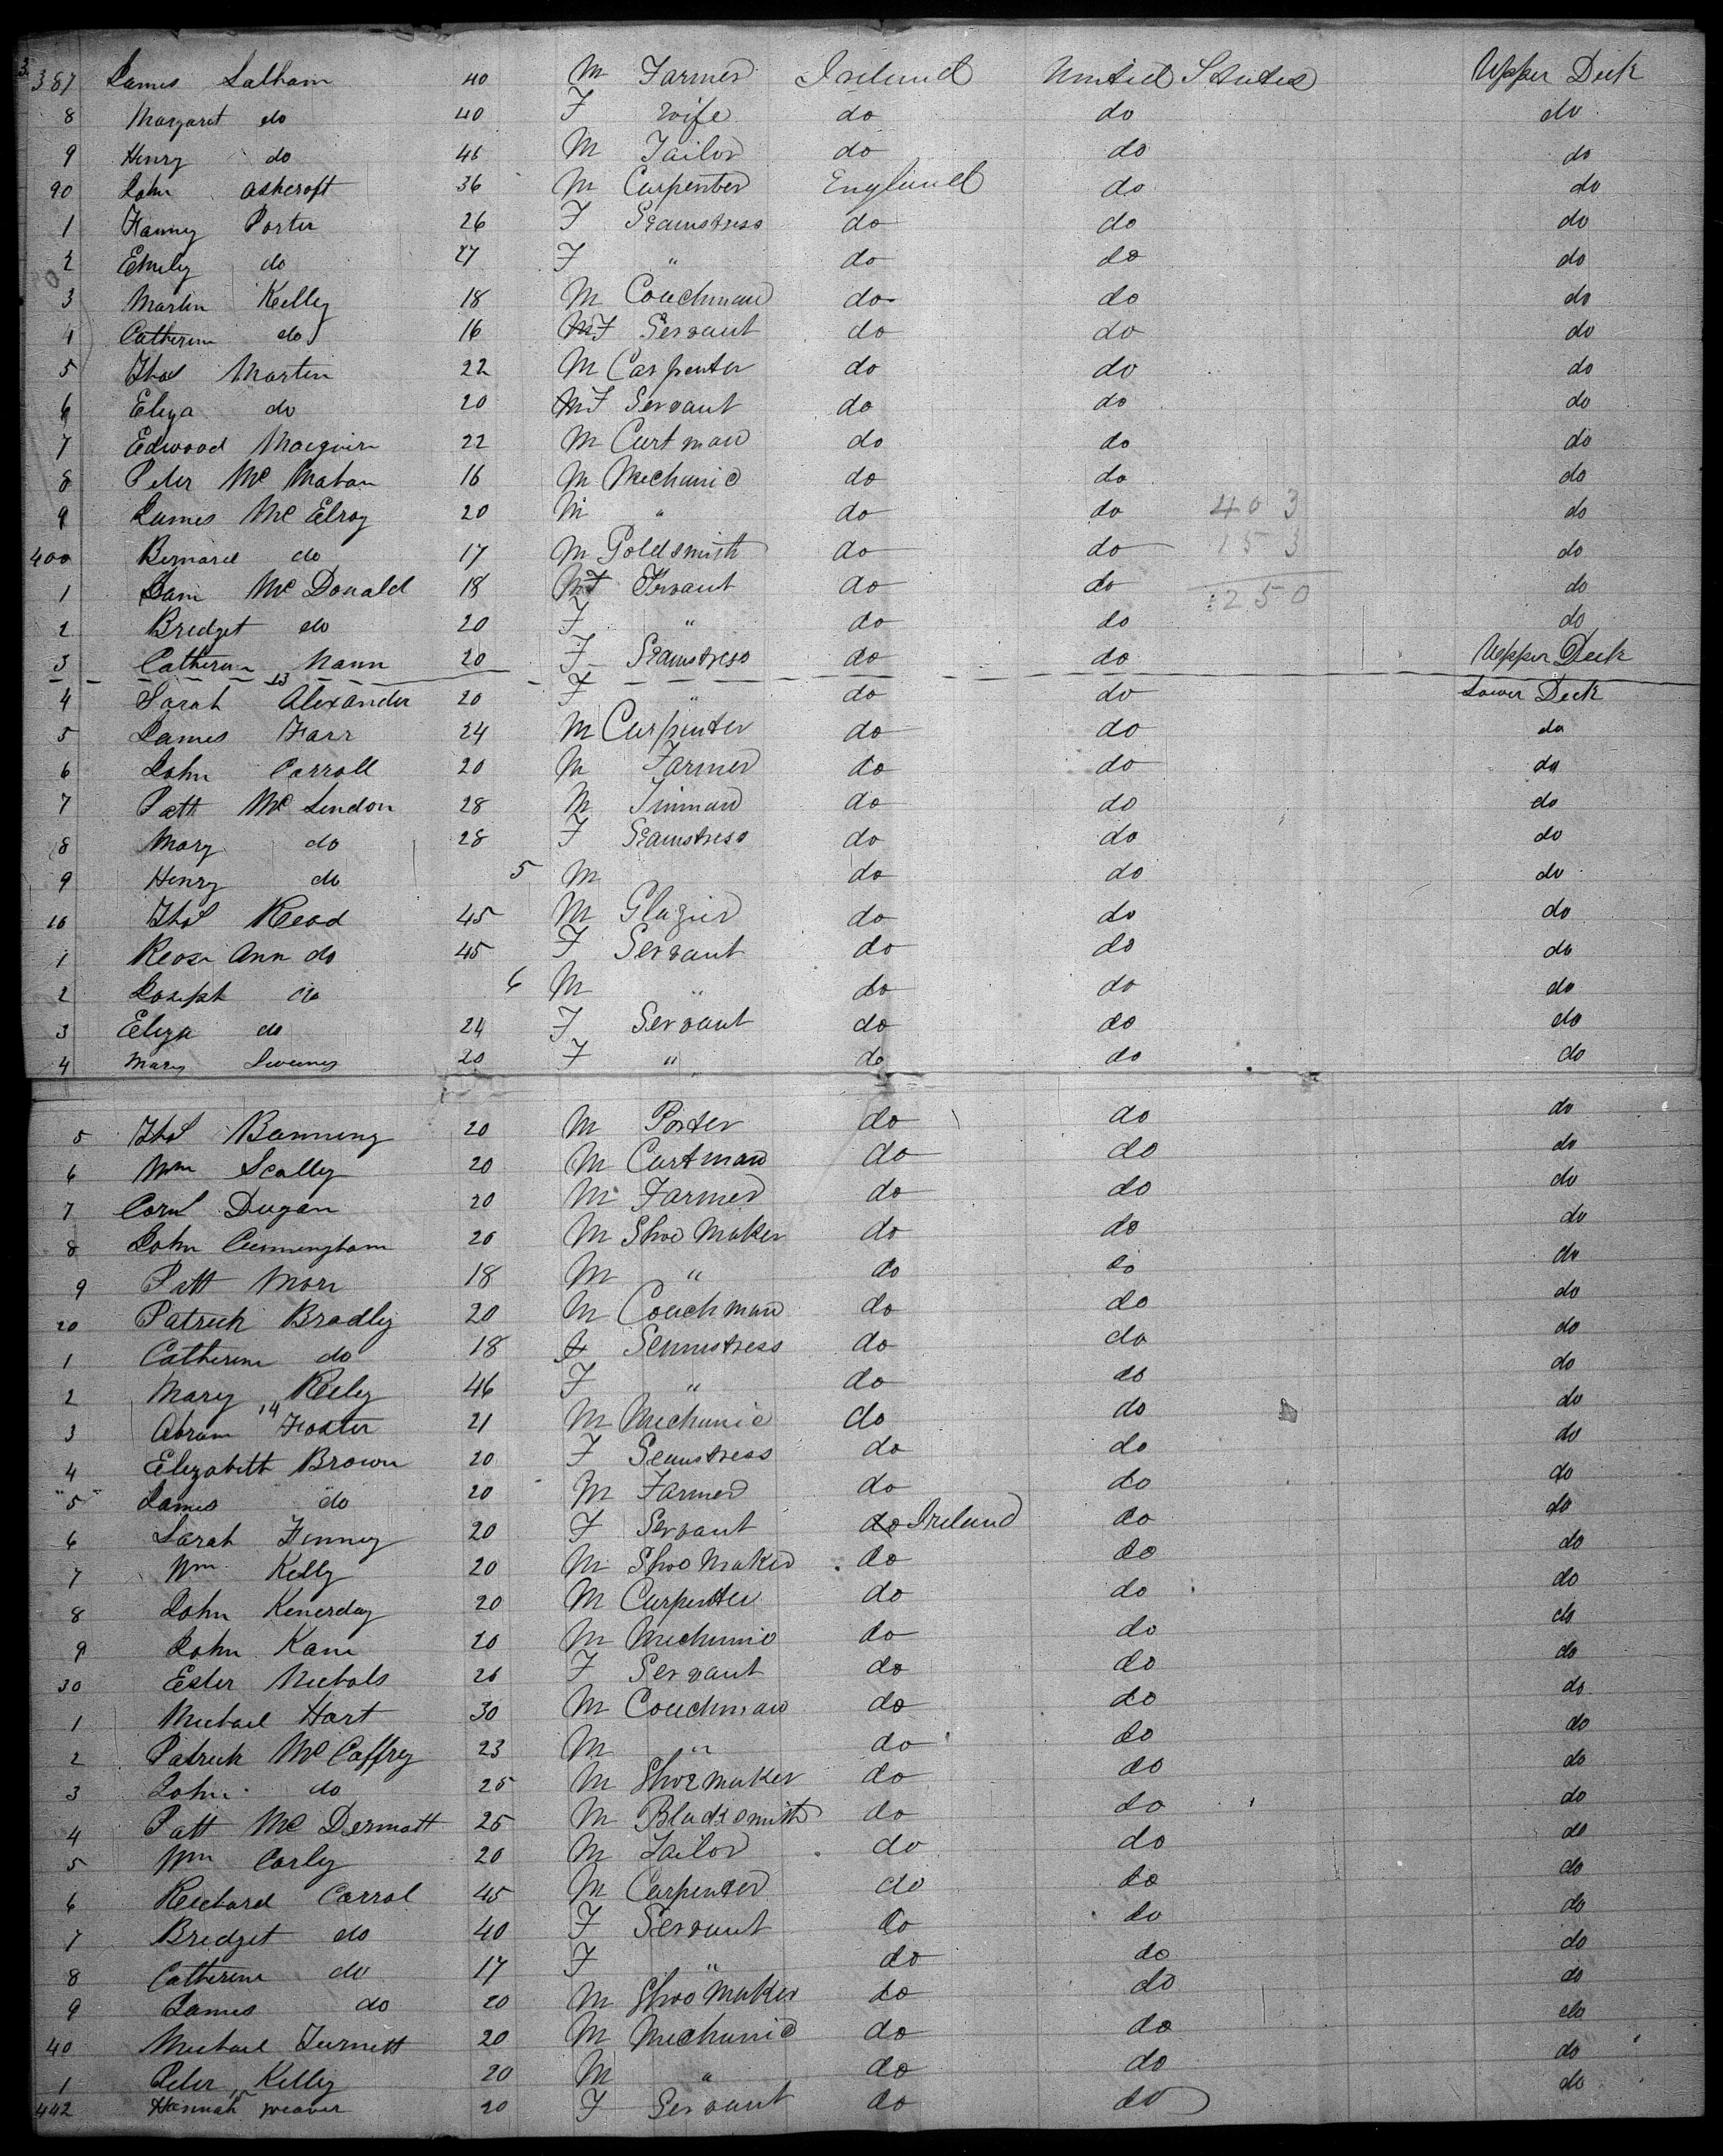 387 James Latham 40 M Farmer Ireland United States Upper Deck
8 Margaret do 40 F wife do do do
9 Henry do 46 M Tailor do do do
90 John Ashcroft 36 M Carpenter England do do
1 Fanny Porter 26 F Seamstress do do do
2 Emily do 27 F " do do do
3 Martin Kelley 18 M Coachman do do do
4 Catherine do 16 F Servant do do do
5 Thos Martin 22 M Carpenter do do do
6 Eliza do 20 F Servant do do do
7 Edwood Macguire 22 M Cartman do do do
8 Peter Mc Mahan 16 M Mechanic do do do
9 James Mc Elroy 20 M " do do 403 do
400 Bernard do 17 M Goldsmith do do 153 do
1 Jane Mc Donald 18 F Servant do do 250 do
2 Bridget do 20 F " do do do
3 Catherine Mann 20 F Seamstress do do Upper Deck
13
4 Sarah Alexander 20 F " do do Lower Deck
5 James Farr 24 M Carpenter do do do
6 John Carroll 20 M Farmer do do do
7 Patt Mc Lindon 28 M Tinman do do do
8 Mary do 28 F Seamstress do do do
9 Henry do 5 M do do do
10 Thos Read 45 M Glazier do do do
1 Rose Ann do 45 F Servant do do do
2 Joseph do 6 M " do do do
3 Eliza do 24 F Servant do do do
4 Mary Sweeney 20 F " do do do
5 Thos Banning 20 M Porter do do do
6 Wm Scally 20 M Cartman do do do
7 Corns Dugan 20 M Farmer do do do
8 John Cunningham 20 M Shoe Maker do do do
9 Patt Morr 18 M " do do do
20 Patrick Bradley 20 M Coachman do do do
1 Catherine do 18 F Seamstress do do do
2 Mary Reiley 46 F " do do do
14
3 Abram Foster 21 M Mechanic do do do
4 Elizabeth Brown 20 F Seamstress do do do
"5" James do 20 M Farmer do do do
6 Sarah Finney 20 F Servant do Ireland do do
7 Wm Kelly 20 M Shoe Maker do do do
8 John Kenerday 20 M Carpenter do do do
9 John Kane 20 M Mechanic do do do
30 Ester Nichols 26 F Servant do do do
1 Michael Hart 30 M Coachman do do do
2 Patrick Mc Caffrey 23 M " do do do
3 John do 25 M Shoemaker do do do
4 Patt Mc Dermott 25 M Blacksmith do do do
5 Wm Corley 20 M Tailor do do do
6 Richard Carrol 45 M Carpenter do do do
7 Bridget do 40 F Servant do do do
8 Catherine do 17 F " do do do
9 James do 20 M Shoe Maker do do do
40 Michael Turnett 20 M Mechanic do do do
1 Peter Kelley 20 M " do do do
15
442 Hannah Weaver 20 F Servant do do do